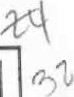 24
32